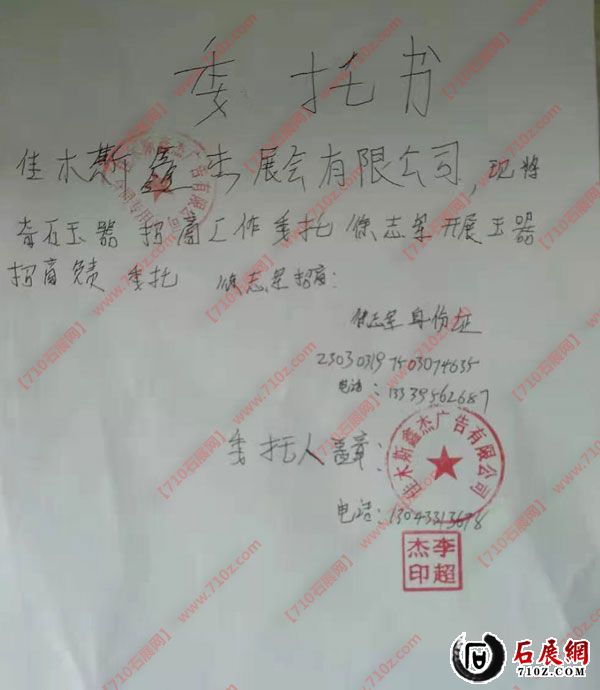 委托书
佳木斯鑫杰展会有限公司,现将
奇石玉器 招商工作委托 保志军开展玉器
招商 委托 保志军招商:
保志军身份证
230303197503074635
电话:13339562687
委托人盖章:
佳木斯鑫杰广告有限公司
电话:13043313678
李超
杰印
【710石展网】 www.710z.com
石展網
710Z.COM